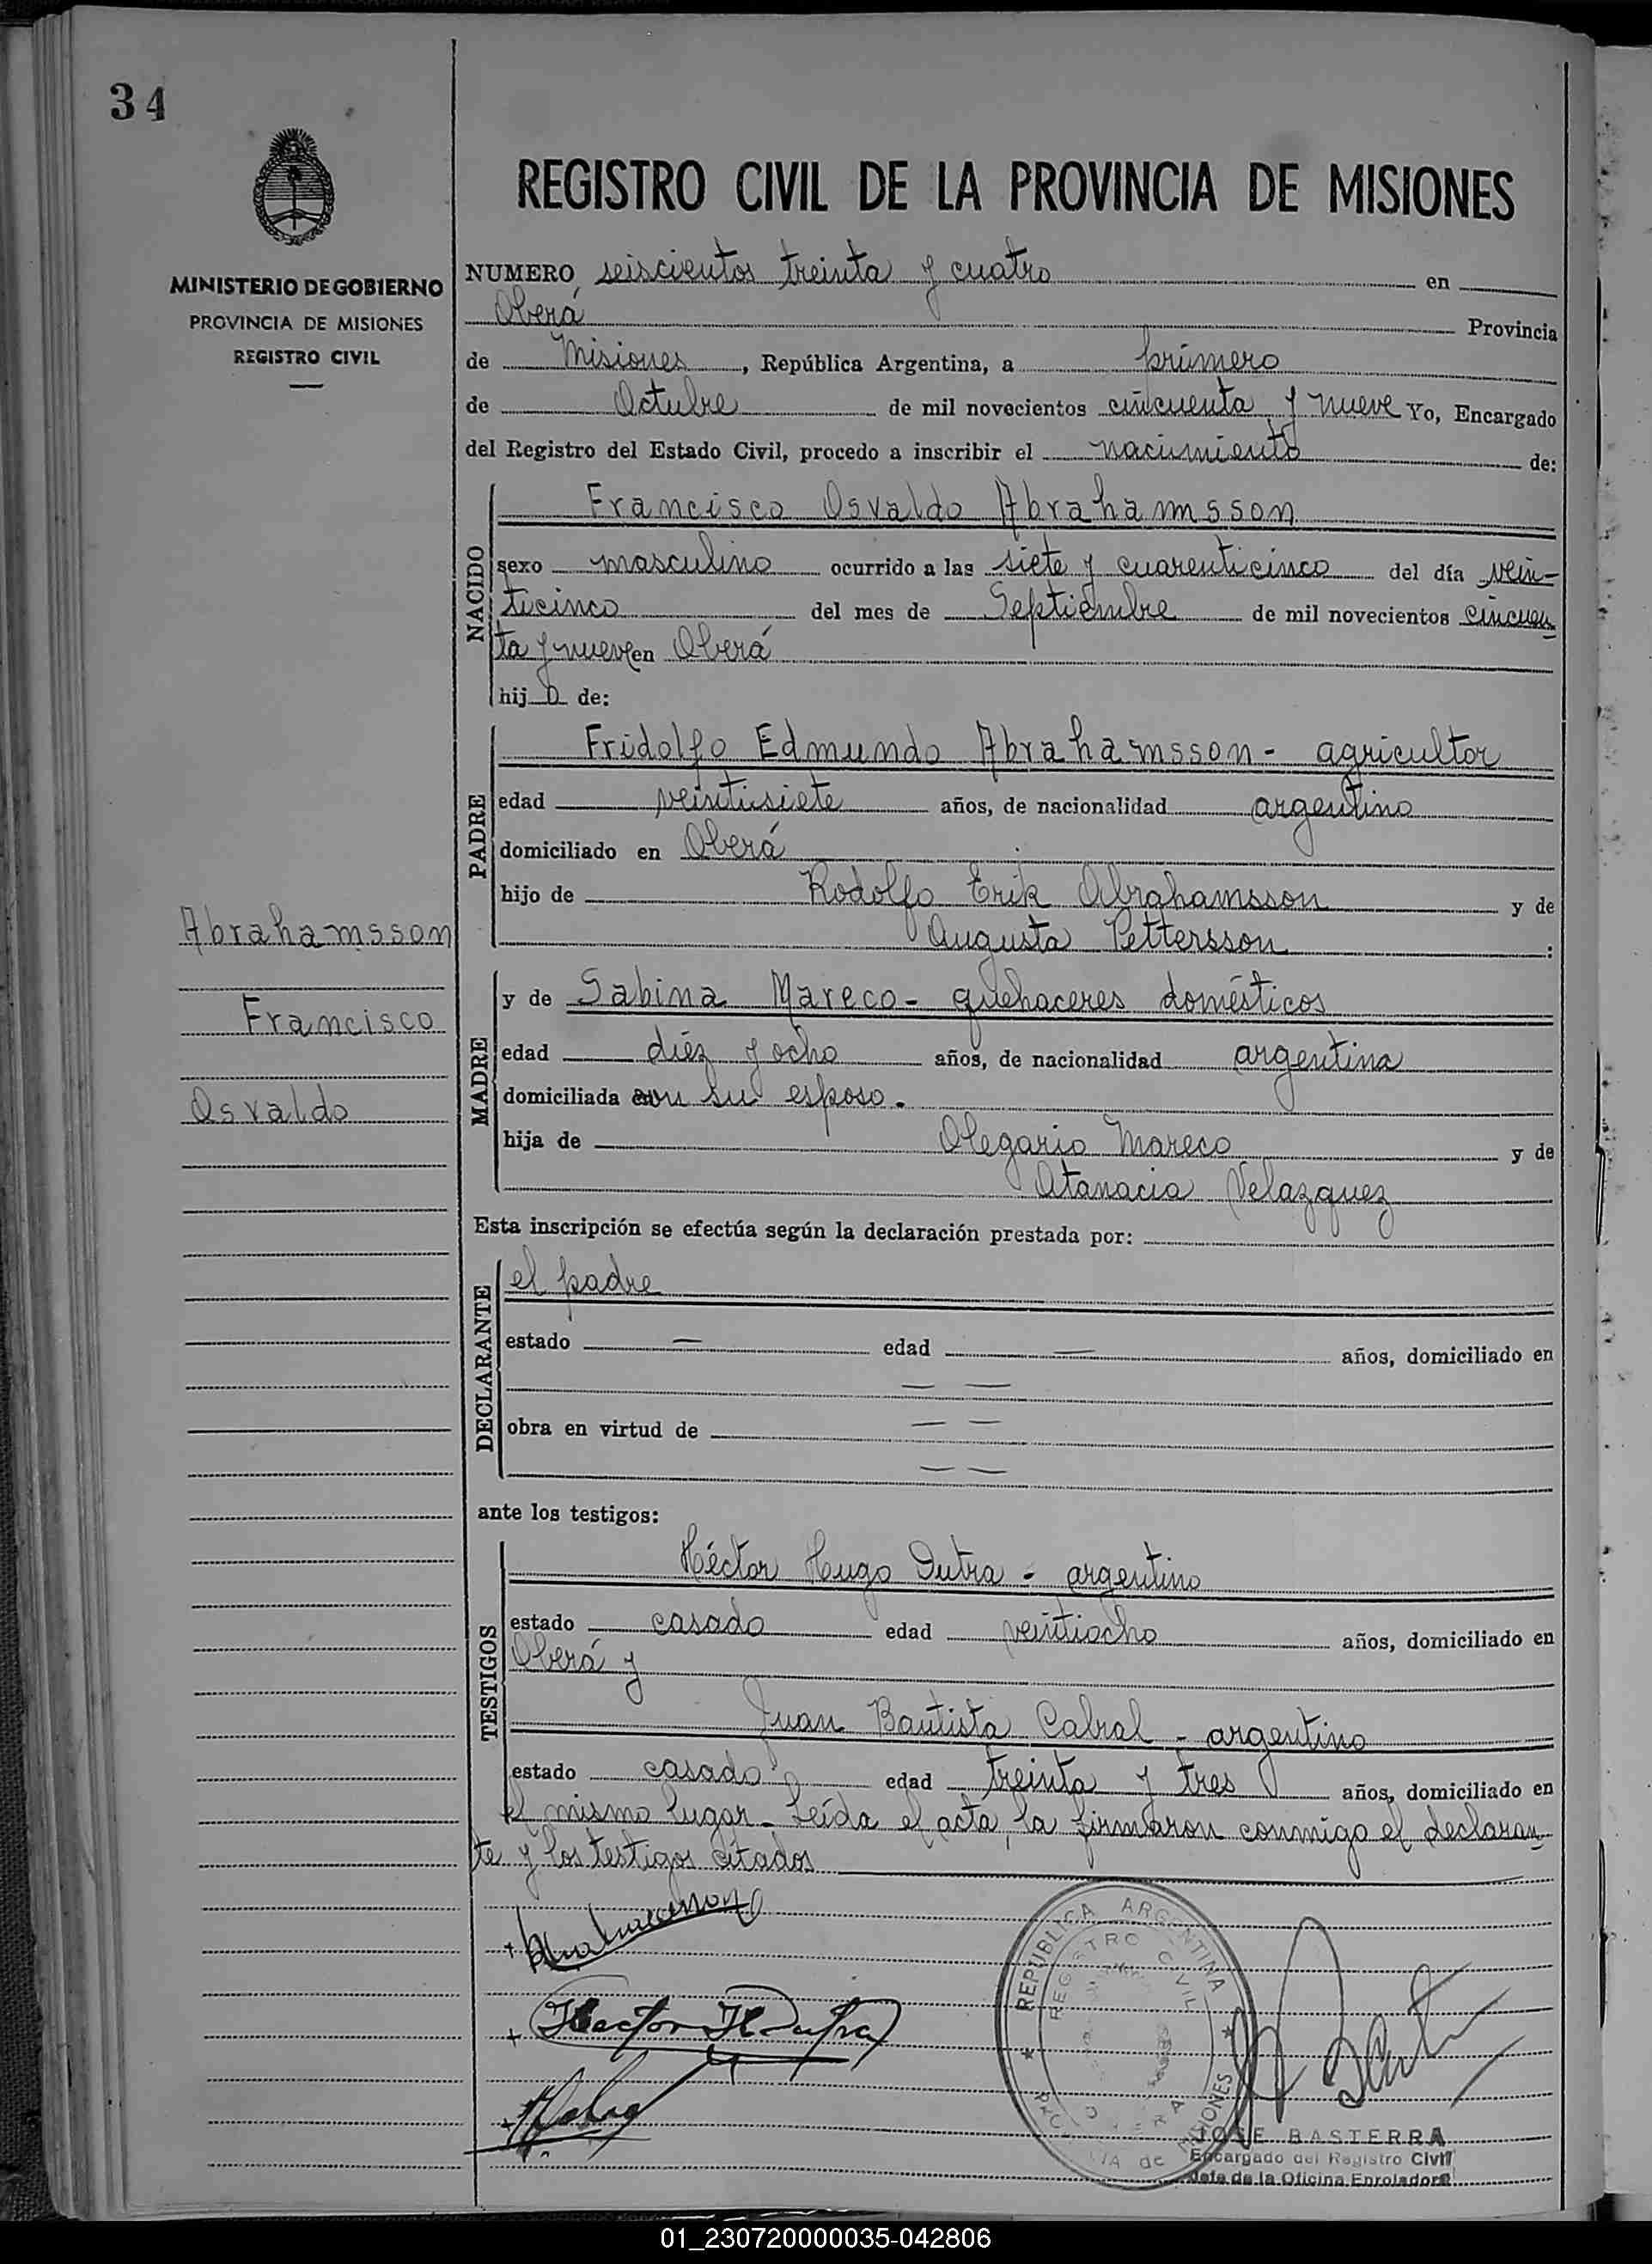 34
MINISTERIO DE GOBIERNO
PROVINCIA DE MISIONES
REGISTRO CIVIL
Abrahamsson
Francisco
Osvaldo
REGISTRO CIVIL DE LA PROVINCIA DE MISIONES
NUMERO seiscientos treinta y cuatro en
Oberá Provincia
de Misiones, República Argentina, a primero
de Octubre de mil novecientos cincuenta y nueve Yo, Encargado
del Registro del Estado Civil, procedo a inscribir el nacimiento de:
NACIDO
Francisco Osvaldo Abrahamsson
sexo masculino ocurrido a las siete y cuarenticinco del día vein-
ticinco del mes de Septiembre de mil novecientos cincuen
ta y nueve en Oberá
hijo de:
PADRE
Fridolfo Edmundo Abrahamsson - agricultor
edad veintisiete años, de nacionalidad argentino
domiciliado en Oberá
hijo de Rodolfo Erik Abrahamsson y de
Augusta Pettersson :
MADRE
y de Sabina Mareco - quehaceres domésticos
edad diéz y ocho años, de nacionalidad argentina
domiciliada con su esposo.
hija de Olegario Mareco y de
Atanacia Velazquez
Esta inscripción se efectúa según la declaración prestada por:
DECLARANTE
el padre
estado — edad — años, domiciliado en
— —
obra en virtud de — —
— —
ante los testigos:
TESTIGOS
Héctor Hugo Dutra - argentino
estado casado edad veintiocho años, domiciliado en
Oberá y
Juan Bautista Cabral - argentino
estado casado edad treinta y tres años, domiciliado en
el mismo lugar - Leída el acta, la firmaron conmigo el declaran
te y los testigos citados
+ Abrahamsson
+ Hector H Dutra
REPUBLICA ARGENTINA
REGISTRO CIVIL
OBERA
PROVINCIA de MISIONES
JOSE BASTERRA
Encargado del Registro Civil
Jefe de la Oficina Enroladora
01_230720000035-042806